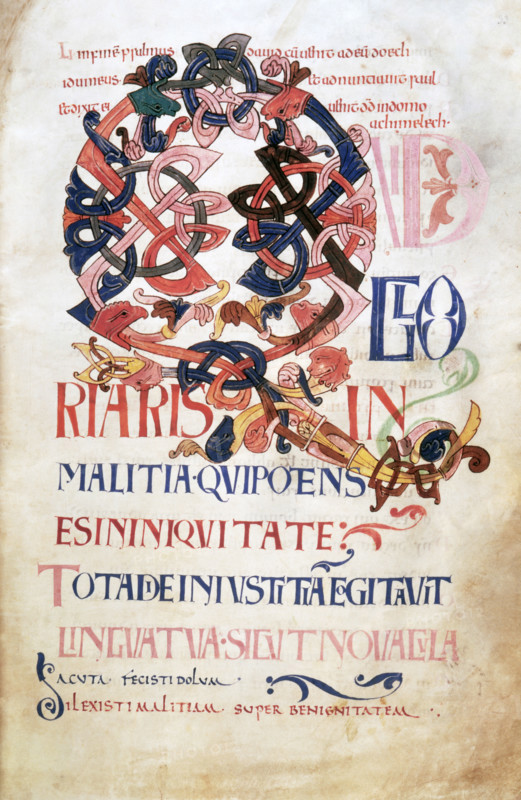 In finē psalmus dauid cū uenit ad eū doech
idumeus & adnunciauit saul
& dixit ei uenit dd in domo
achimelech.
QVID
GLO
RIARIS IN
MALITIA·QVIPOTENS
ES IN INIQVITATE:
TOTADIE INIVSTITIĀ COGITAVIT
LINGVATVA·SICVT NOVACVLA
ACVTA· FECISTI DOLVM
DILEXISTI MALITIAM SUPER BENIGNITATEM